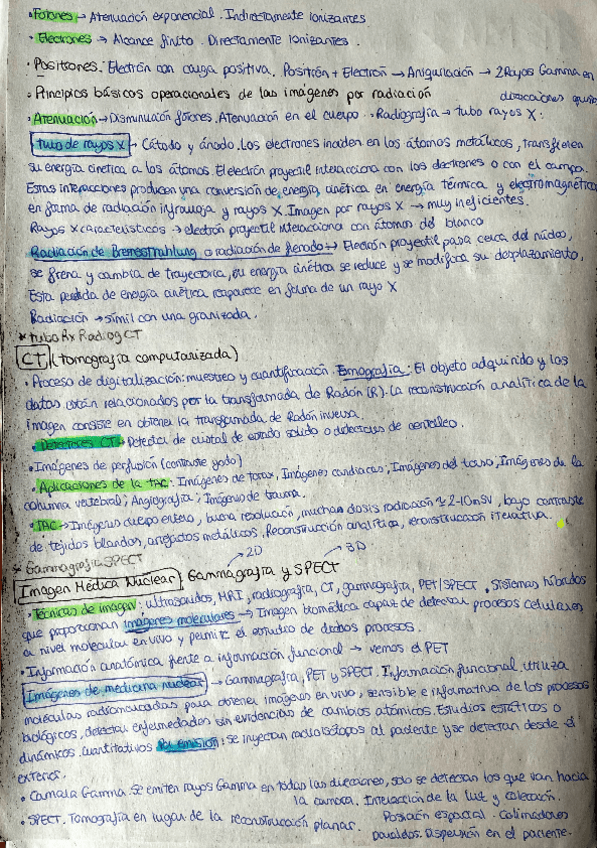 · Fotones → Atenuación exponencial. Indirectamente ionizantes
· Electrones → Alcance finito. Directamente ionizantes.
· Positrones. Electrón con carga positiva. Positrón + Electrón → Aniquilación → 2 Rayos Gamma en direcciones
· Principios básicos operacionales de las imágenes por radiación
· Atenuación → Disminución fotones. Atenuación en el cuerpo. · Radiografía → tubo rayos X:
Tubo de rayos X → Cátodo y ánodo. Los electrones inciden en los átomos metálicos, transfieren
su energía cinética a los átomos. El electrón proyectil interacciona con los electrones o con el campo.
Estas interacciones producen una conversión de energía cinética en energía térmica y electromagnética
en forma de radiación infrarroja y rayos X. Imagen por rayos X → muy ineficientes.
Rayos X característicos → electrón proyectil interacciona con átomos del blanco
Radiación de Bremsstrahlung o radiación de frenado → Electrón proyectil pasa cerca del núcleo,
se frena y cambia de trayectoria, su energía cinética se reduce y se modifica su desplazamiento,
Esta perdida de energía cinética reaparece en forma de un rayo X
Radiación → símil con una granizada.
* tubo Rx Radiog CT
CT (tomografía computarizada)
· Proceso de digitalización: muestreo y cuantificación. Tomografía: El objeto adquirido y los
datos están relacionados por la transformada de Radón (R). La reconstrucción analítica de la
imagen consiste en obtener la transformada de Radón inversa.
· Detectores CT: Detector de cristal de estado sólido o detectores de centelleo.
· Imágenes de perfusión (contraste yodo)
· Aplicaciones de la TAC: Imágenes de torax, Imágenes cardiacas, Imágenes del torso; Imágenes de la
columna vertebral; Angiografía; Imágenes de trauma.
· TAC → Imágenes cuerpo entero, buena resolución, muchas dosis radiación 2-10 mSV, bajo contraste
de tejidos blandos, artefactos metálicos, Reconstrucción analítica, reconstrucción iterativa.
* Gammagrafía SPECT
→ 2D → 3D
Imagen Médica Nuclear: Gammagrafía y SPECT
· Técnicas de imagen: ultrasonidos, MRI, radiografía, CT, gammagrafía, PET/SPECT. Sistemas híbridos
que proporcionan imágenes moleculares → Imagen biomédica capaz de detectar procesos celulares
a nivel molecular en vivo y permite el estudio de dichos procesos.
· Información anatómica frente a información funcional → vemos el PET
Imágenes de medicina nuclear → Gammagrafía, PET y SPECT. Información funcional utiliza
moléculas radiomarcadas para obtener imágenes en vivo, sensible e informativa de los procesos
biológicos, detectar enfermedades sin evidencias de cambios atómicos. Estudios estáticos o
dinámicos. Cuantitativos Por emisión: se inyectan radioisótopos al paciente y se detectan desde el
exterior.
· Camara Gamma. Se emiten rayos Gamma en todas las direcciones, solo se detectan los que van hacia
la camara. Interacción de la luz y colocación.
· SPECT. Tomografía en lugar de la reconstrucción planar. Posición espacial. Colimadores
paralelos. Dispersión en el paciente.